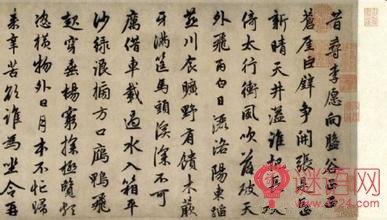 昔尋李愿向盤谷正見
蒼崖巨壁爭開張是時
新晴天井溢誰把長劍
倚太行衝風吹落破天
外飛雨白日灑洛陽東蹈
燕川食曠野有饋木蕨
牙滿筐馬頭溪深不可
厲借車載過水入箱平
沙綠浪榜方口鴈鴨飛
起穿垂楊窮探極覽頗
恣橫物外日月本不忙歸
来辛苦欲誰為坐令再
謎语网